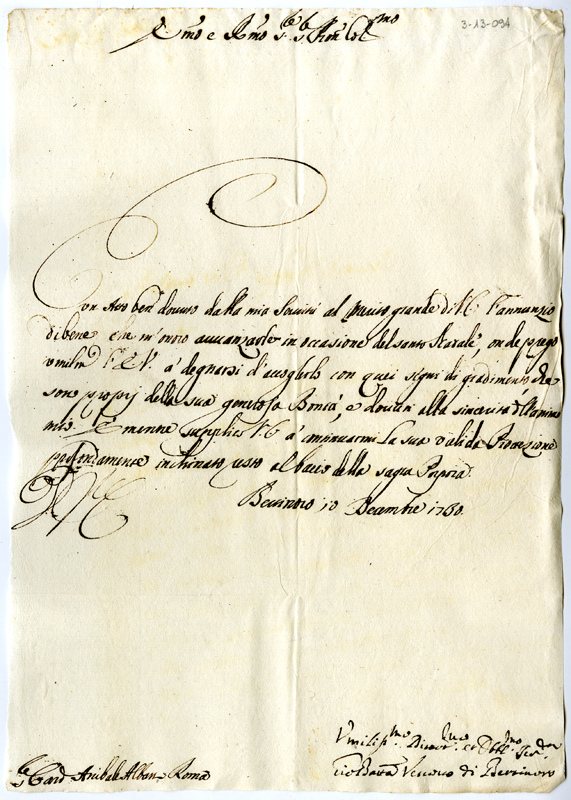 3-13-094
E.mo e R.mo Sig.r Sig.r Pron Col.mo
Con Atto ben dovuto dalla mia Servitù al merito grande di V.E. l'annunzio
di bene che m'onoro avvanzarle in occasione del santo Natale, onde prego
umilm.e l'E.V. à degnarsi d'accoglierlo con quei segni di gradimento, che
sono proprj della sua generosa Bontà, e dovuti alla sincerità dell'animo
mio. E mentre supplico V.E. à continuarmi la sua valida Protezione
profondamente inchinato, resto al bacio della sagra Porpora.
Bertinoro 10 Decembre 1730.
Vmiliss.mo Divot.mo et Obbl.mo Ser.dor
Gio Batta Vescovo di Bertinoro
S.r Card Anibale Albani Roma